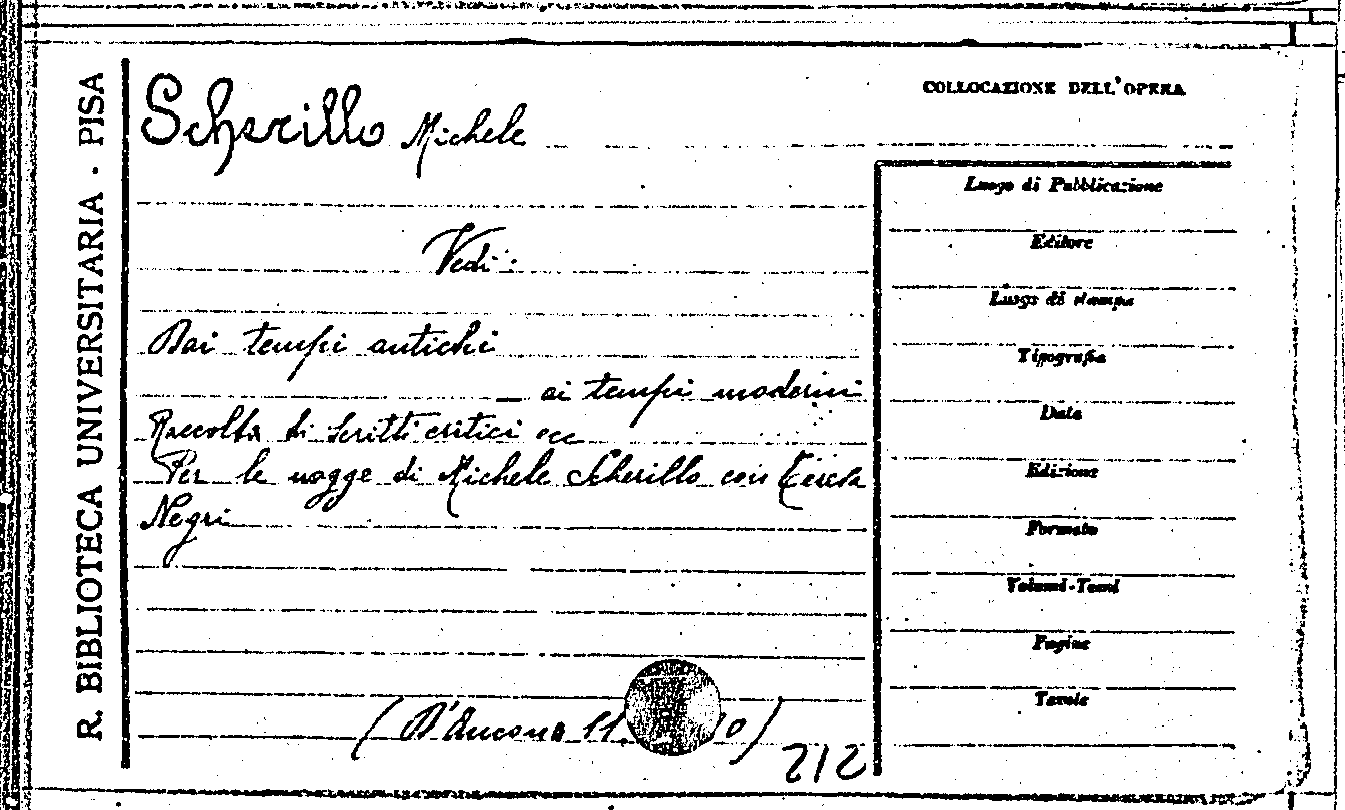 R. BIBLIOTECA UNIVERSITARIA - PISA
Scherillo Michele
Vedi:
Dai tempi antichi
_ ai tempi moderni
Raccolta di scritti critici ecc
Per le nozze di Michele Scherillo con Teresa
Negri
(D'Ancona 11. 0)
212
COLLOCAZIONE DELL'OPERA
Luogo di Pubblicazione
Editore
Luogo di stampa
Tipografia
Data
Edizione
Formato
Volumi-Tomi
Pagine
Tavole